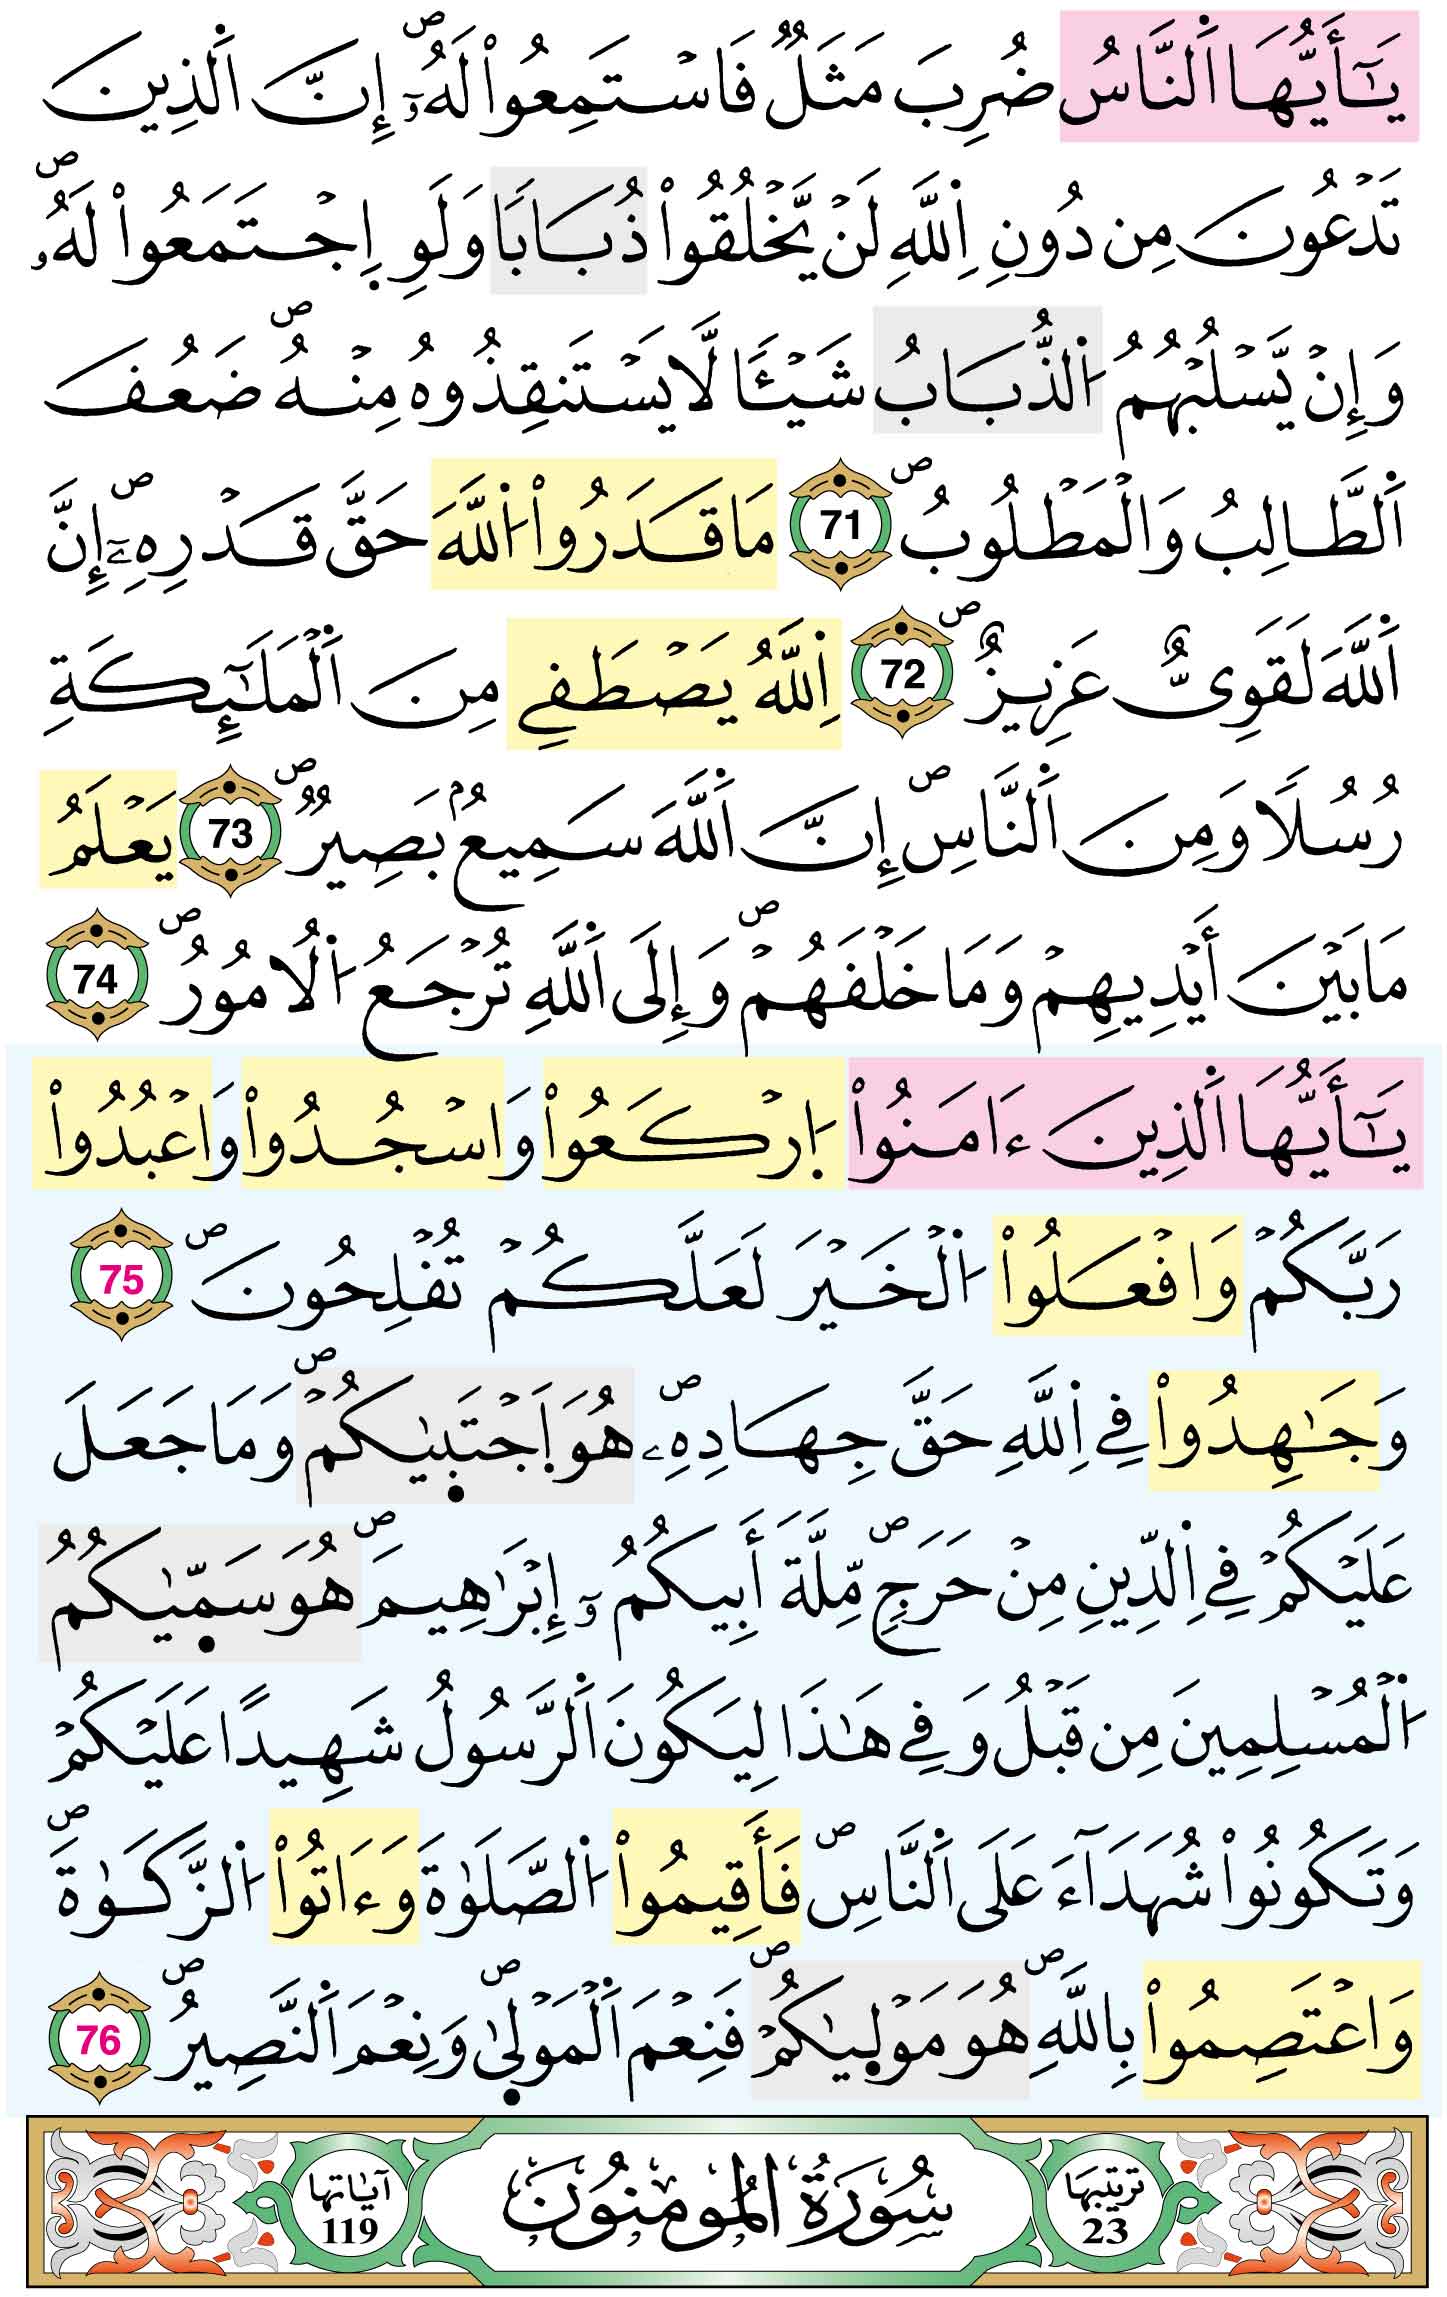 يَٰٓأَيُّهَا اَ۬لنَّاسُ ضُرِبَ مَثَلٞ فَاسْتَمِعُواْ لَهُۥٓۖ إِنَّ اَ۬لذِينَ
تَدْعُونَ مِن دُونِ اِ۬للَّهِ لَنْ يَّخْلُقُواْ ذُبَاباٗ وَلَوِ اِ۪جْتَمَعُواْ لَهُۥۖ
وَإِنْ يَّسْلُبْهُمُ اُ۬لذُّبَابُ شَيْـٔاٗ لَّا يَسْتَنقِذُوهُ مِنْهُۖ ضَعُفَ
اَ۬لطَّالِبُ وَالْمَطْلُوبُۖ 71 مَا قَدَرُواْ اُ۬للَّهَ حَقَّ قَدْرِهِۦٓۖ إِنَّ
اَ۬للَّهَ لَقَوِيٌّ عَزِيزٌۖ 72 اِ۬للَّهُ يَصْطَفِے مِنَ اَ۬لْمَلَٰٓئِكَةِ
رُسُلاٗ وَمِنَ اَ۬لنَّاسِۖ إِنَّ اَ۬للَّهَ سَمِيعُۢ بَصِيرٞۖ 73 يَعْلَمُ
مَا بَيْنَ أَيْدِيهِمْ وَمَا خَلْفَهُمْۖ وَإِلَى اَ۬للَّهِ تُرْجَعُ اُ۬لُامُورُۖ 74
يَٰٓأَيُّهَا اَ۬لذِينَ ءَامَنُواْ اُ۪رْكَعُواْ وَاسْجُدُواْ وَاعْبُدُواْ
رَبَّكُمْ وَافْعَلُواْ اُ۬لْخَيْرَ لَعَلَّكُمْ تُفْلِحُونَۖ 75
وَجَٰهِدُواْ فِے اِ۬للَّهِ حَقَّ جِهَادِهِۦۖ هُوَ اَ۪جْتَب۪يٰكُمْۖ وَمَا جَعَلَ
عَلَيْكُمْ فِے اِ۬لدِّينِ مِنْ حَرَجٖۖ مِّلَّةَ أَبِيكُمُۥٓ إِبْرَٰهِيمَۖ هُوَ سَمّ۪يٰكُمُ
اُ۬لْمُسْلِمِينَ مِن قَبْلُ وَفِے هَٰذَا لِيَكُونَ اَ۬لرَّسُولُ شَهِيداً عَلَيْكُمْ
وَتَكُونُواْ شُهَدَآءَ عَلَى اَ۬لنَّاسِۖ فَأَقِيمُواْ اُ۬لصَّلَوٰةَ وَءَاتُواْ اُ۬لزَّكَوٰةَۖ
وَاعْتَصِمُواْ بِاللَّهِۖ هُوَ مَوْل۪يٰكُمْۖ فَنِعْمَ اَ۬لْمَوْل۪يٰۖ وَنِعْمَ اَ۬لنَّصِيرُۖ 76
ترتيبها 23 سُورَةُ الْمُومِنُونَ آياتها 119